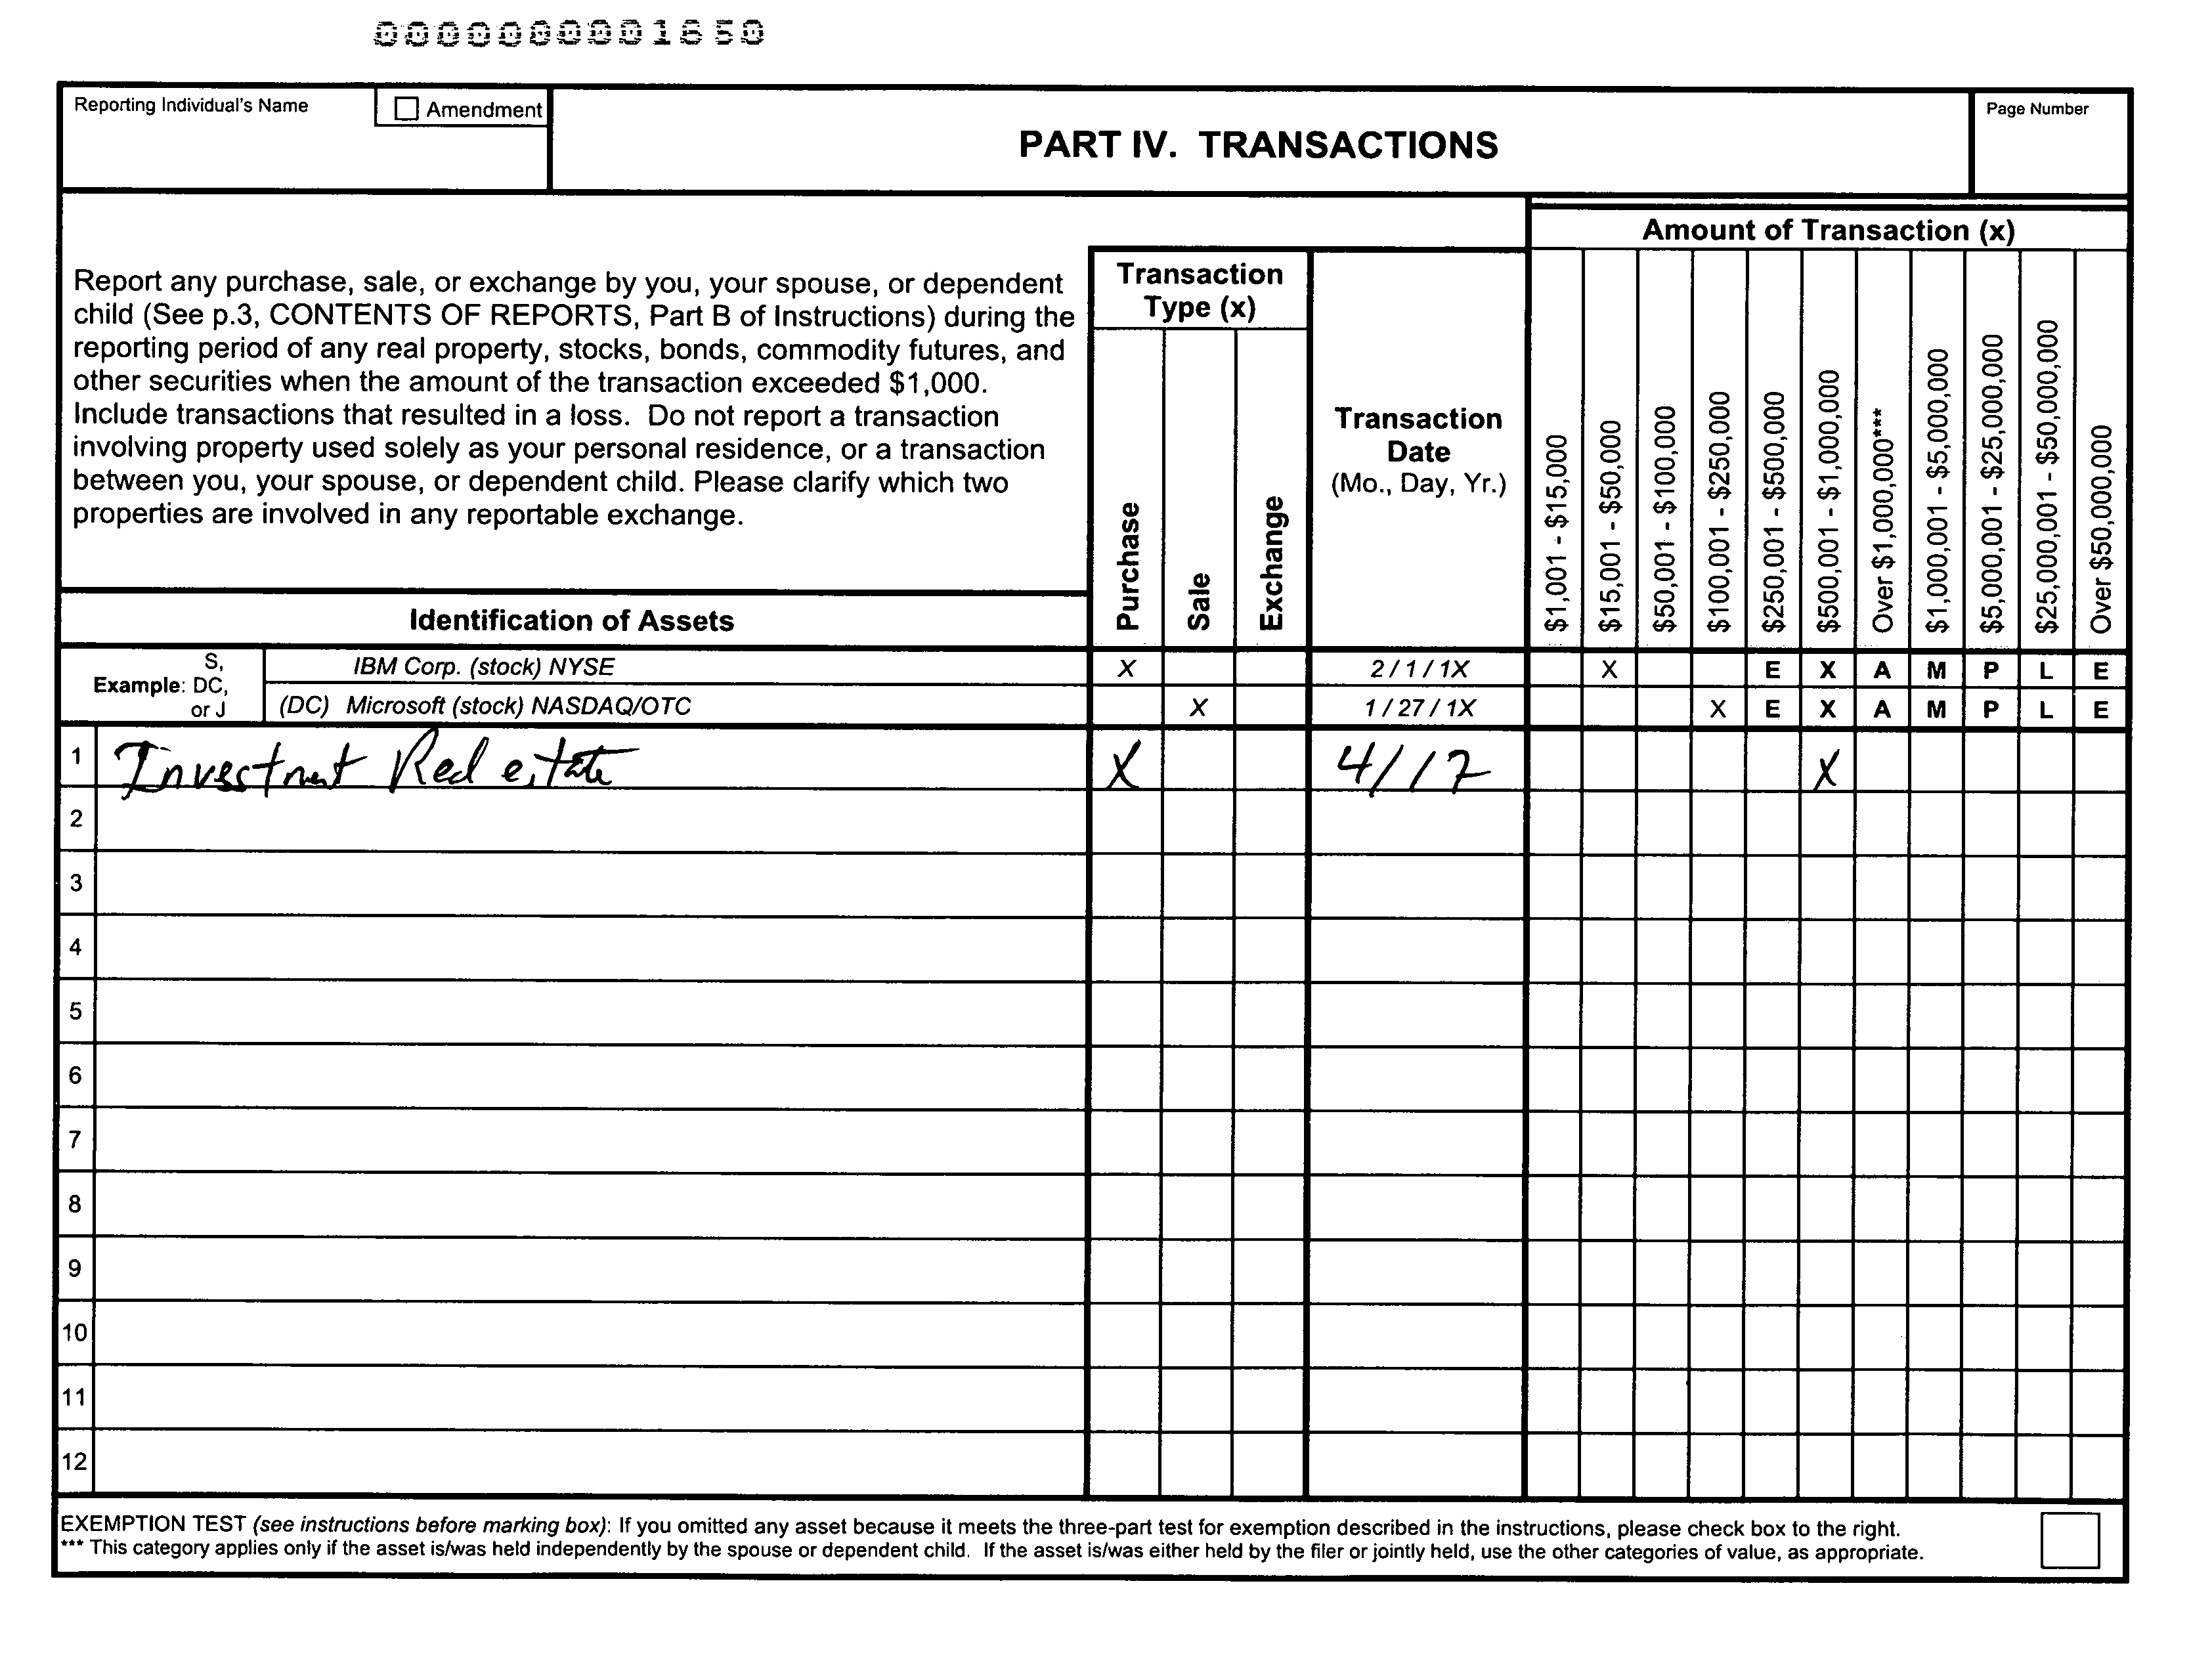 0000000001650
Reporting Individual's Name
Amendment
PART IV. TRANSACTIONS
Page Number
Report any purchase, sale, or exchange by you, your spouse, or dependent
child (See p.3, CONTENTS OF REPORTS, Part B of Instructions) during the
reporting period of any real property, stocks, bonds, commodity futures, and
other securities when the amount of the transaction exceeded $1,000.
Include transactions that resulted in a loss. Do not report a transaction
involving property used solely as your personal residence, or a transaction
between you, your spouse, or dependent child. Please clarify which two
properties are involved in any reportable exchange.
Identification of Assets
Transaction
Type (x)
Purchase
Sale
Exchange
Transaction
Date
(Mo., Day, Yr.)
Amount of Transaction (x)
$1,001 - $15,000
$15,001 - $50,000
$50,001 - $100,000
$100,001 - $250,000
$250,001 - $500,000
$500,001 - $1,000,000
Over $1,000,000***
$1,000,001 - $5,000,000
$5,000,001 - $25,000,000
$25,000,001 - $50,000,000
Over $50,000,000
Example: S, DC, or J
IBM Corp. (stock) NYSE X 2 / 1 / 1X X E X A M P L E
(DC) Microsoft (stock) NASDAQ/OTC X 1 / 27 / 1X X E X A M P L E
1 Investmt Real estate X 4/17 X
2
3
4
5
6
7
8
9
10
11
12
EXEMPTION TEST (see instructions before marking box): If you omitted any asset because it meets the three-part test for exemption described in the instructions, please check box to the right.
*** This category applies only if the asset is/was held independently by the spouse or dependent child. If the asset is/was either held by the filer or jointly held, use the other categories of value, as appropriate.